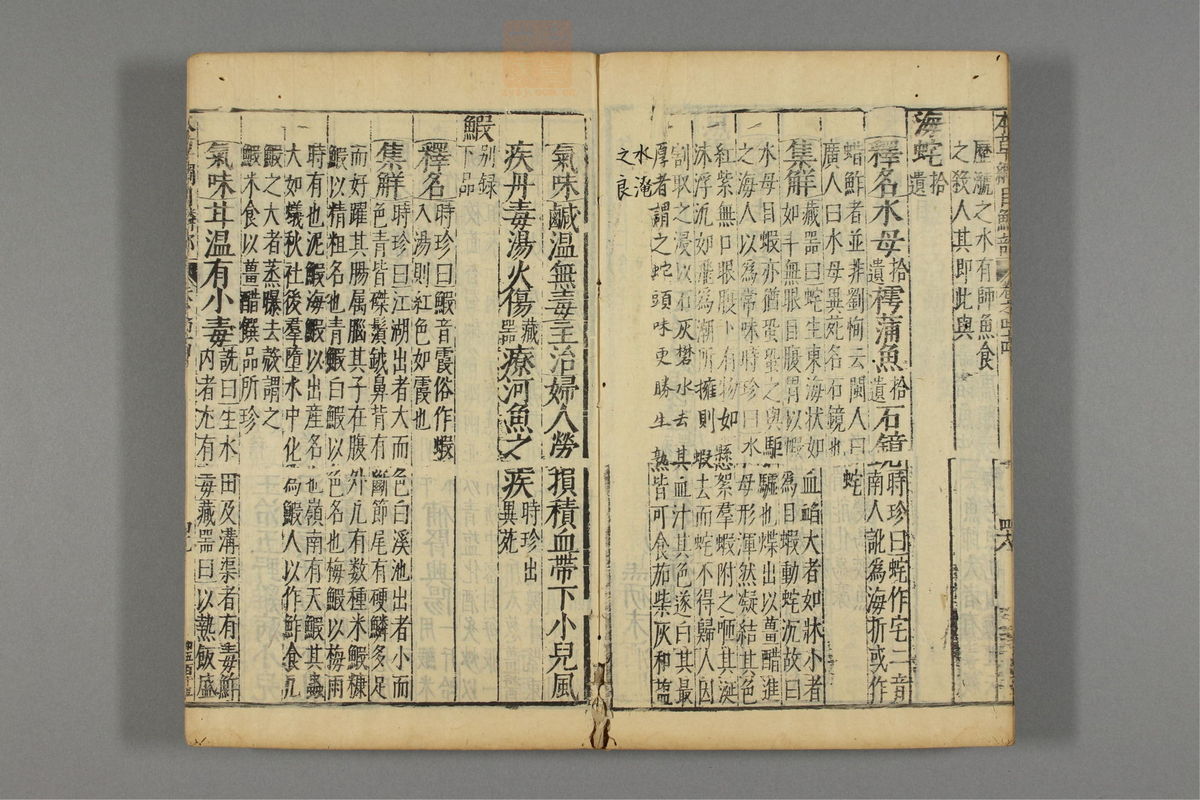 歷㶟之水有師魚食
之殺人其即此與
海蛇拾遺
釋名水母拾遺樗蒲魚拾遺石鏡時珍曰蛇作宅二音
南人訛為海折或作
蜡鮓者並非劉恂云閩人曰蛇
廣人曰水母異苑名石鏡也
集解藏器曰蛇生東海狀如血䘓大者如牀小者
如斗無眼目腹胃以蝦為目蝦動蛇沉故曰
水母目蝦亦猶蛩蛩之與駏驉也煠出以薑醋進
之海人以為常味時珍曰水母形渾然凝結其色
紅紫無口眼腹下有物如懸絮羣蝦附之咂其涎
沫浮沉如飛為潮所擁則蝦去而蛇不得歸人因
割取之浸以石灰礬水去其血汁其色遂白其最
厚者謂之蛇頭味更勝生熟皆可食茄柴灰和鹽
水淹
之良
氣味鹹温無毒主治婦人勞損積血帶下小兒風
疾丹毒湯火傷藏器療河魚之疾時珍出異苑
鰕别録下品
釋名時珍曰鰕音霞俗作蝦
入湯則紅色如霞也
集解時珍曰江湖出者大而色白溪池出者小而
色青皆磔鬚鉞鼻背有斷節尾有硬鱗多足
而好躍其腸属腦其子在腹外凡有数種米鰕糠
鰕以精粗名也青鰕白鰕以色名也梅鰕以梅雨
時有也泥鰕海鰕以出産名也嶺南有天鰕其蟲
大如蟻秋社後羣墮水中化為鰕人以作鮓食凡
鰕之大者蒸曝去殼謂之
鰕米食以薑醋饌品所珍
氣味甘温有小毒詵曰生水田及溝渠者有毒鮓
内者尤有毒藏器曰以熱飯盛